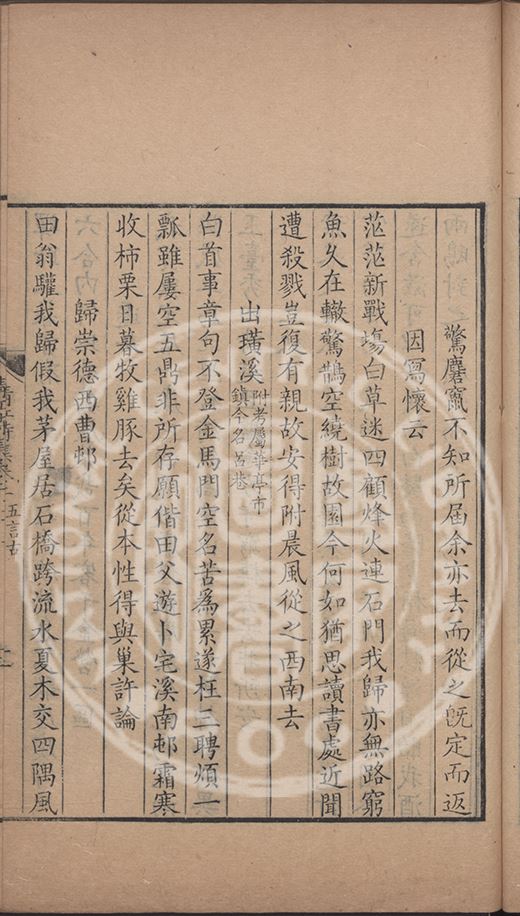 驚麏竄不知所屆余亦去而從之既定而返
因寫懷云
茫茫新戰塲白草迷四顧烽火連石門我歸亦無路窮
魚久在轍驚鵲空繞樹故園今何如猶思讀書處近聞
遭殺戮豈復有親故安得附晨風從之西南去
出璜溪附考屬華亭市鎮今名呂巷
白首事章句不登金馬門空名苦爲累遂枉三聘煩一
瓢雖屢空五鼎非所存願偕田父遊卜宅溪南邨霜寒
收柿栗日暮牧雞豚去矣從本性得與巢許論
歸崇德西曹邨
田翁驩我歸假我茅屋居石橋跨流水夏木交四隅風
五言古